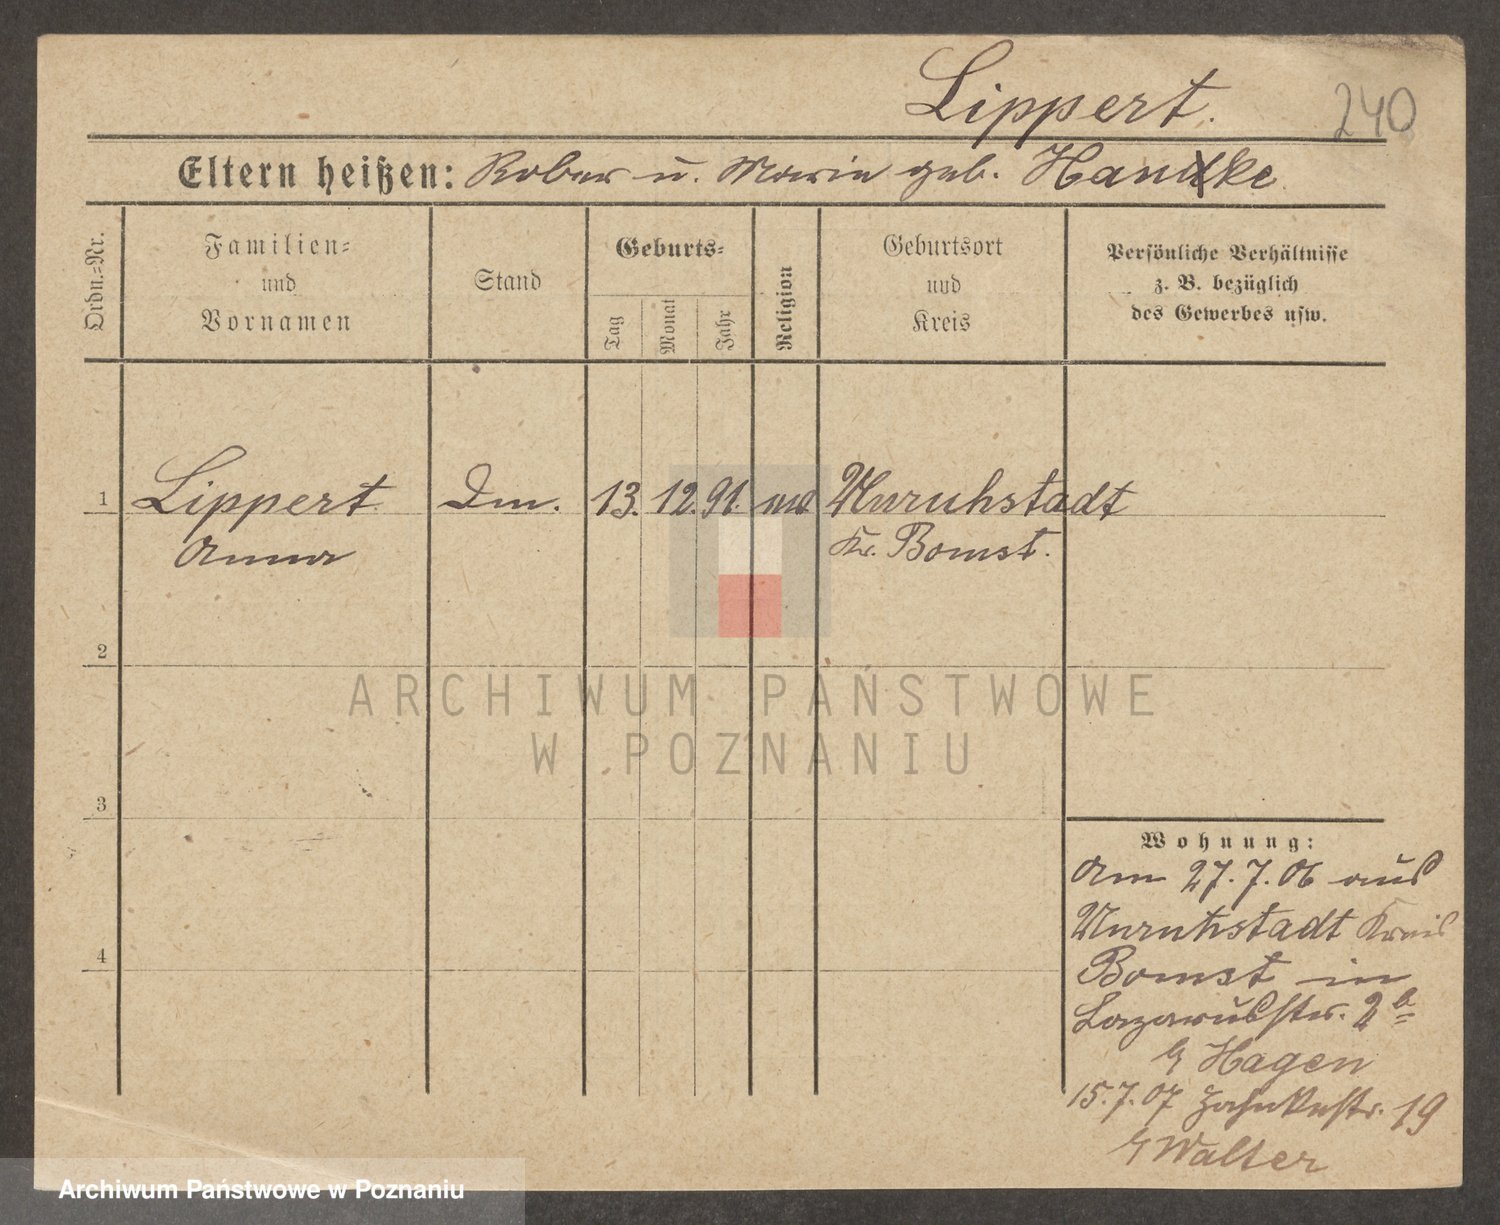 Lippert.
240
Eltern heißen: Robert u. Marie geb. Handke
Ordn.=Nr.
Familien=
und
Vornamen
Stand
Geburts=
Tag
Monat
Jahr
Religion
Geburtsort
und
Kreis
Persönliche Verhältnisse
z. B. bezüglich
des Gewerbes usw.
1 Lippert Dm. 13. 12. 91. Unruhstadt
Anna Kr. Bomst.
2
ARCHIWUM PAŃSTWOWE
W POZNANIU
3
Wohnung:
Am 27. 7. 06 aus
Unruhstadt Kreis
Bomst in
Lazarusstr. 2b
b/ Hagen
15. 7. 07 19
b/ Walter
4
Archiwum Państwowe w Poznaniu